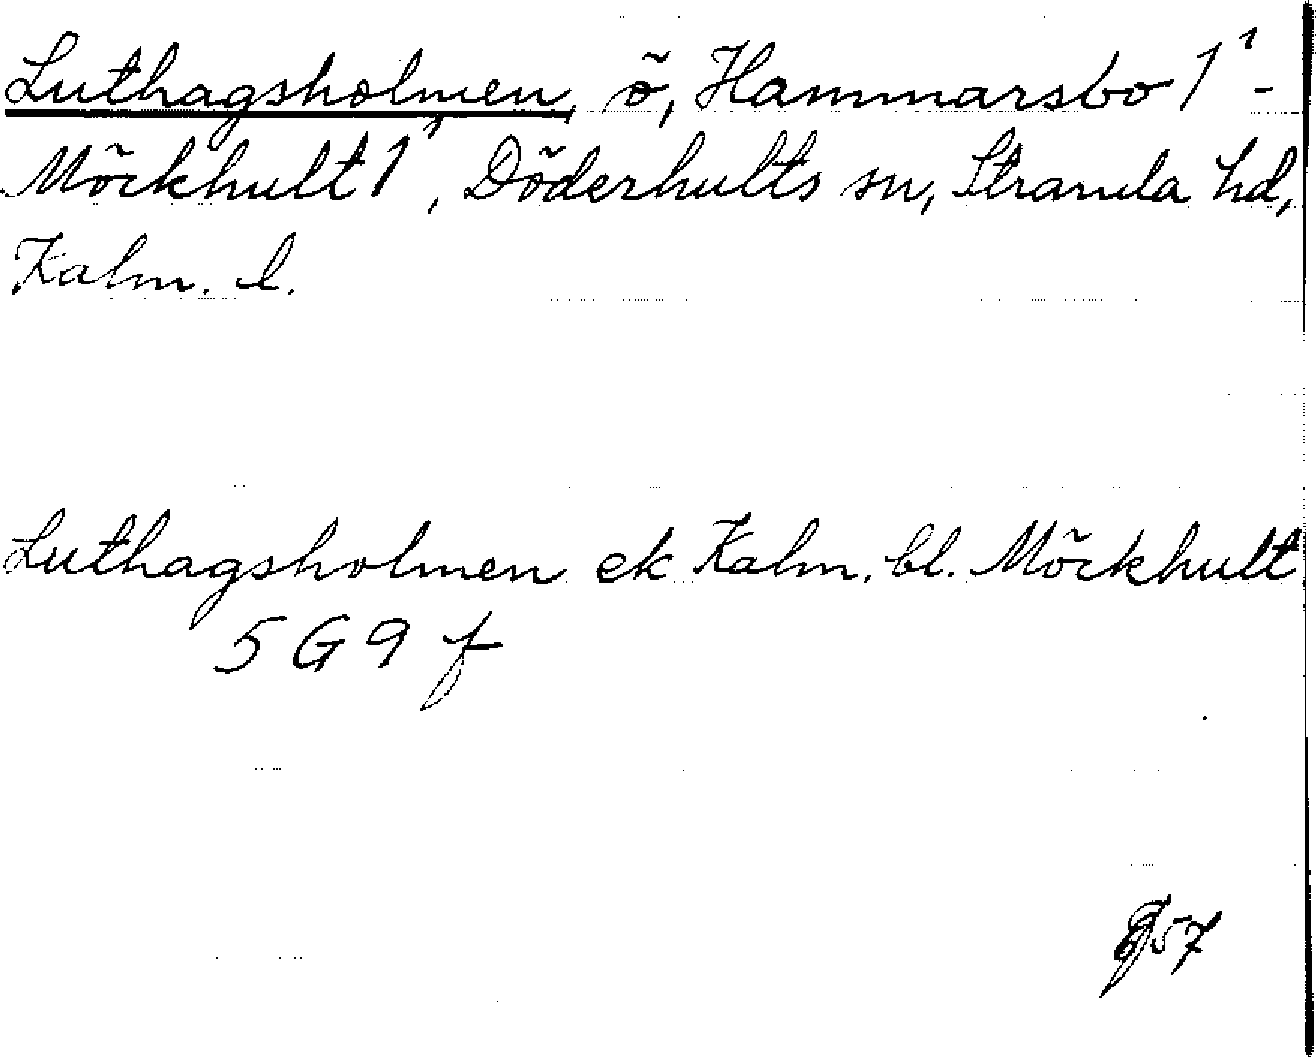 Luthagsholmen, ö, Hammarsbo 1¹ -
Möckhult 1¹, Döderhults sn, Stranda hd,
Kalm. l.
Luthagsholmen ek Kalm. bl. Möckhult
5 G 9 f
57